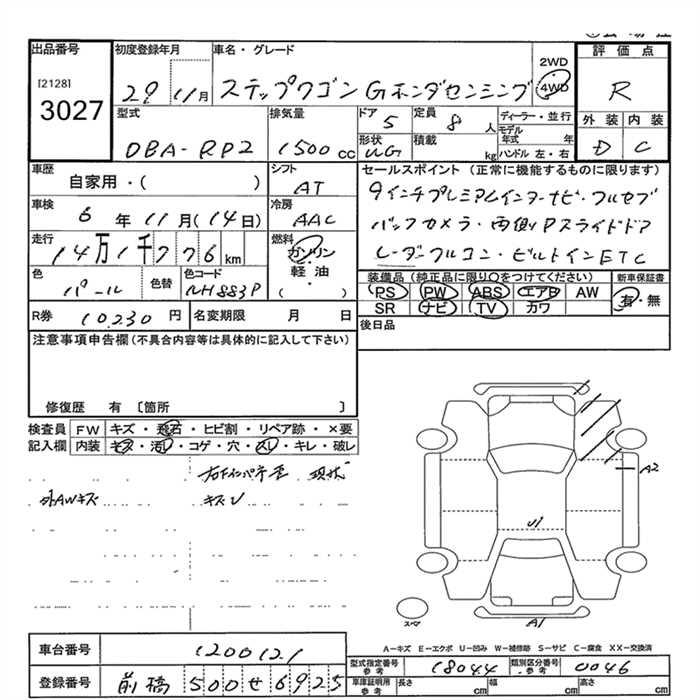 出品番号
[2128]
3027
初度登録年月
29 11月
車名・グレード
ステップワゴン Gホンダセンシング
2WD
4WD
評価点
R
外装 内装
D C
型式
DBA-RP2
排気量
1500 CC
ドア
5
定員
8 人
ディーラー・並行
モデル年式 年
形状
WG
積載
kg
ハンドル 左・右
車歴
自家用・( )
シフト
AT
車検
6年 11月(14日)
冷房
AAC
走行
14万1千776km
燃料
ガソリン
軽油
( )
色
パール
色替
色コード
NH883P
R券 10,230円
名変期限 月 日
セールスポイント(正常に機能するものに限ります)
9インチプレミアムインターナビ・フルセグ
バックカメラ・両側Pスライドドア
レーダークルコン・ビルトインETC
装備品(純正品に限り○をつけてください)
PS PW ABS エアB AW
SR ナビ TV カワ
新車保証書
有・無
後日品
注意事項申告欄(不具合内容等は具体的に記入して下さい)
修復歴 有 〔箇所 〕
検査員記入欄
FW キズ・飛石・ヒビ割・リペア跡・×要
内装 キズ・汚レ・コゲ・穴・スレ・キレ・破レ
現状
外AWキズ
キズU
A2
U1
A1
スペア
A-キズ E-エクボ U-凹み W-補修跡 S-サビ C-腐食 XX-交換済
車台番号 1200121
登録番号 前橋 500せ6925
型式指定番号 参考 18044
類別区分番号 参考 0046
車庫証明用 参考
長さ cm
幅 cm
高さ cm